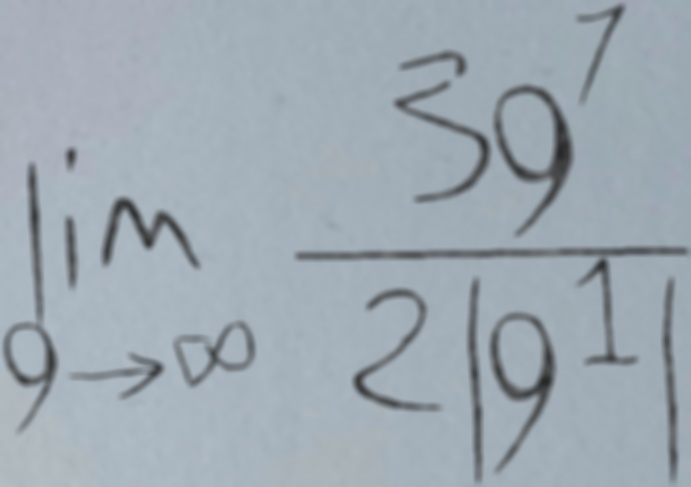 lim g→∞ 3g^7 / 2|g^1|